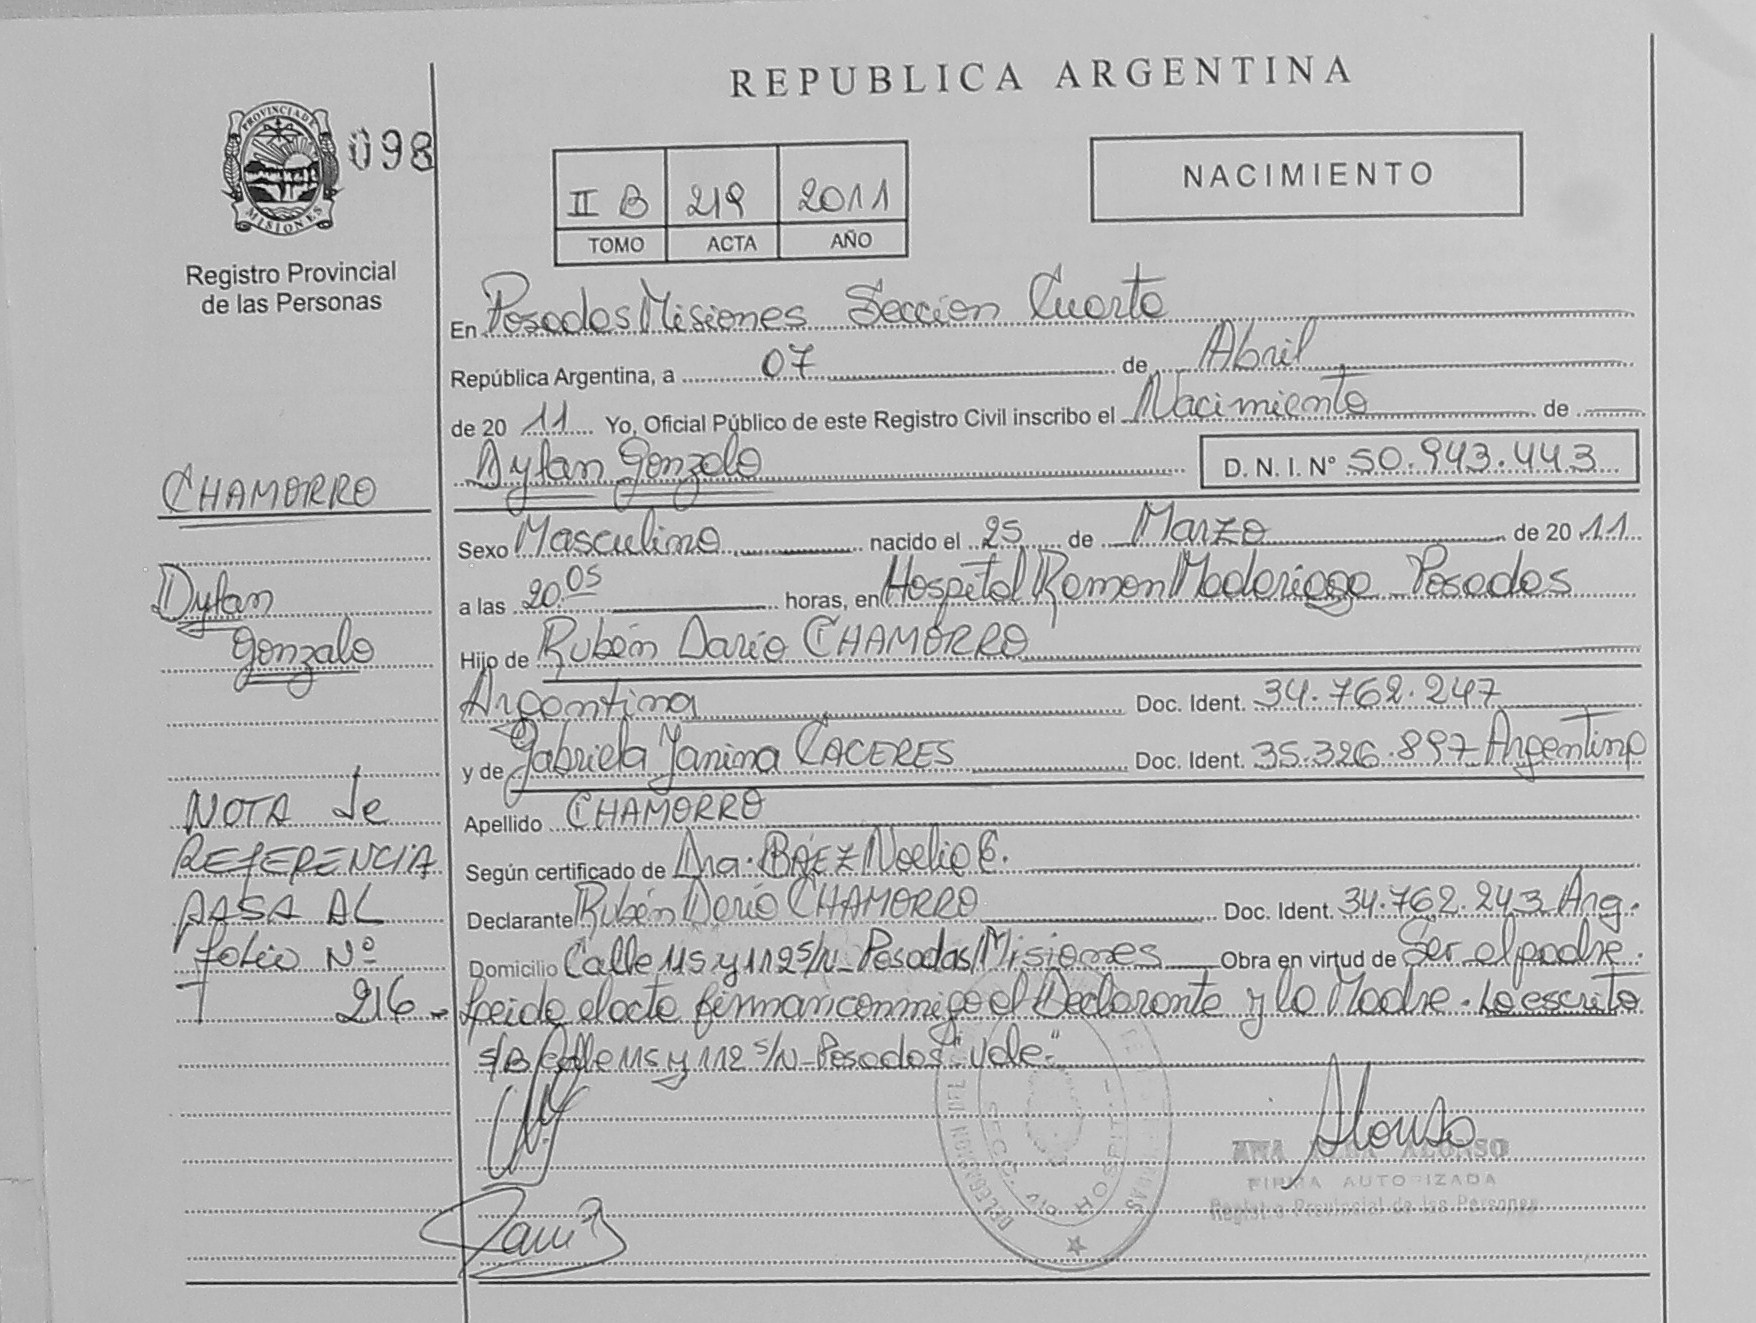 REPUBLICA ARGENTINA
PROVINCIA DE MISIONES
098
Registro Provincial
de las Personas
II B 219 2011
TOMO ACTA AÑO
NACIMIENTO
En Posadas Misiones Seccion Cuarta
República Argentina, a 07 de Abril
de 2011 Yo, Oficial Público de este Registro Civil inscribo el Nacimiento de
Dylan Gonzalo D.N.I. Nº 50.943.443
CHAMORRO
Sexo Masculino nacido el 25 de Marzo de 2011
Dylan
a las 20.05 horas, en Hospital Ramon Madariaga Posadas
Gonzalo
Hijo de Rubén Darío CHAMORRO
Argentina Doc. Ident. 34.762.247
y de Gabriela Yanina CACERES Doc. Ident. 35.326.897 Argentina
NOTA de
REFERENCIA
PASA AL
folio Nº
216-
Apellido CHAMORRO
Según certificado de Dra. BAEZ Noelia E.
Declarante Rubén Darío CHAMORRO Doc. Ident. 34.762.243 Arg.
Domicilio Calle 115 y 112 s/N- Posadas/Misiones Obra en virtud de Ser el padre.
Leida el acta firman conmigo el Declarante y la Madre. Lo escrito
s/B Calle 115 y 112 s/N-Posadas" Vale-"
Alonso
ALONSO
FIRMA AUTORIZADA
Registro Provincial de las Personas